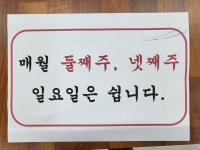 매월 둘째주, 넷째주
일요일은 쉽니다.